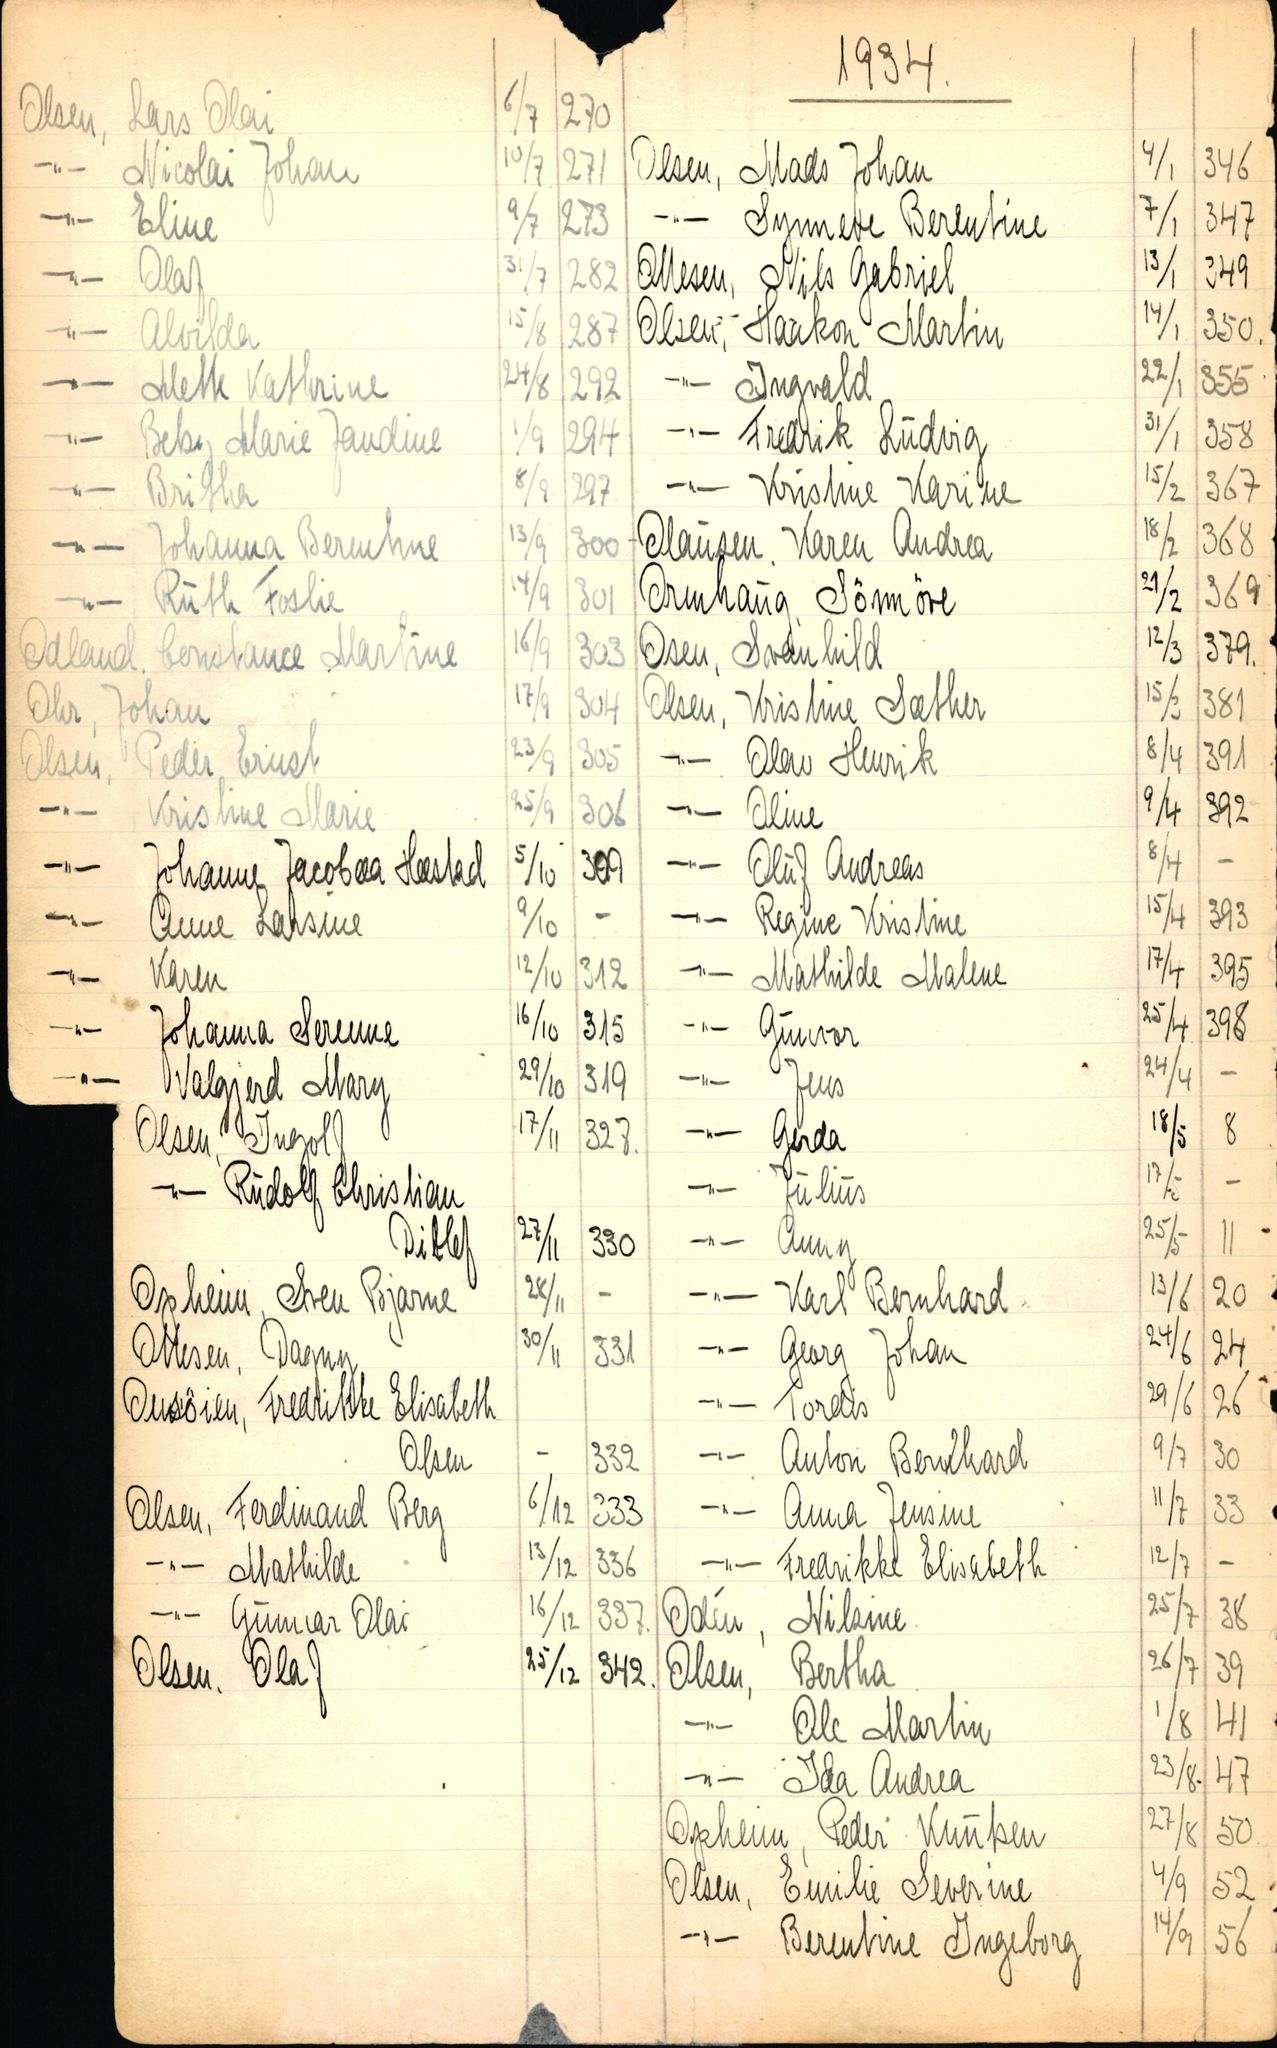 Olsen, Lars Olai 6/7 270
-"- Nicolai Johan 10/7 271
-"- Eline 9/7 273
-"- Olaf 31/7 282
-"- Alvilda 15/8 287
-"- Mette Kathrine 24/8 292
-"- Betsy Marie Jandine 1/9 294
-"- Britha 8/9 297
-"- Johanna Berentine 13/9 300
-"- Ruth Foslie 14/9 301
Odland. Constance Martine 16/9 303
Ohr, Johan 17/9 304
Olsen, Peder Ernst 23/9 305
-"- Kristine Marie 25/9 306
-"- Johanne Jacobæa Hæstad 5/10 309
-"- Anne Larsine 9/10 -
-"- Karen 12/10 312
-"- Johanna Serenne 16/10 315
-"- Valgjerd Mary 29/10 319
Olsen, Ingolf 17/11 327.
-"- Rudolf Christian
Ditlef 27/11 330
Opheim, Sven Bjarne 28/11 -
Ottesen, Dagny 30/11 331
Fredrikke Elisabeth
Olsen - 332
Olsen, Ferdinand Berg 6/12 333
-"- Mathilde 13/12 336
-"- Gunnar Olai 16/12 337.
Olsen. Olaf 25/12 342.
1934.
Olsen, Mads Johan 4/1 346
-"- Synneve Berentine 7/1 347
Ottesen, Nils Gabriel 13/1 349
Olsen, Haakon Martin 14/1 350.
-"- Ingvald 22/1 355
-"- Fredrik Ludvig 31/1 358
-"- Kristine Karine 15/2 367
Olausen, Karen Andrea 18/2 368
Ormhaug, Sönnöve 21/2 369
Osen, Svanhild 12/3 379.
Olsen, Kristine Sæther 15/3 381
-"- Olav Henrik 8/4 391
-"- Oline 9/4 392
-"- Oluf Andreas 8/4 -
-"- Regine Kristine 15/4 393
-"- Mathilde Malene 17/4 395
-"- Gunvor 25/4 398
-"- Jens 24/4 -
-"- Gerda 18/5 8
-"- Julius 17/5 -
-"- Anny 25/5 11
-"- Karl Bernhard 13/6 20
-"- Georg Johan 24/6 24
-"- Tordis 29/6 26
-"- Anton Berndhard 9/7 30
-"- Anna Jensine 11/7 33
-"- Fredrikke Elisabeth 12/7 -
Odén, Nilsine 25/7 38
Olsen, Bertha 26/7 39
-"- Ole Martin 1/8 41
-"- Ida Andrea 23/8. 47
Opheim, Peder Knutsen 27/8 50
Olsen, Emilie Severine 4/9 52
-"- Berentine Ingeborg 14/9 56